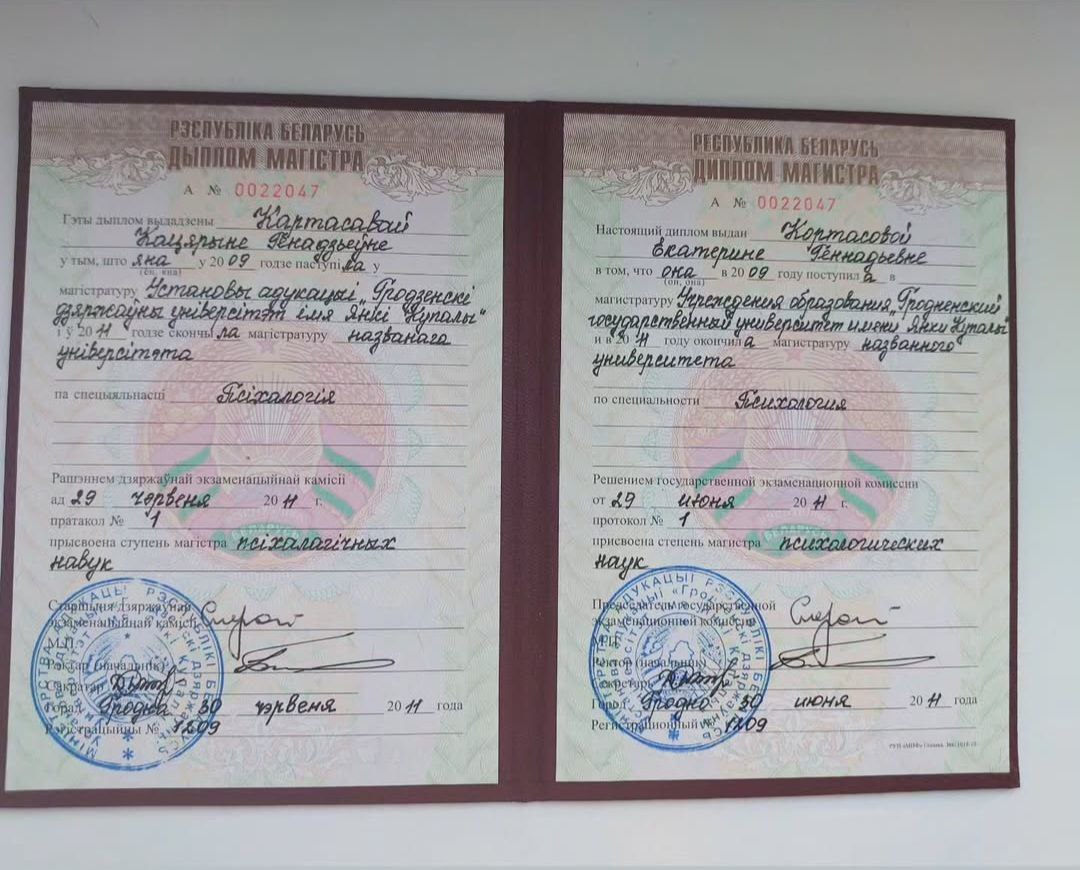 РЭСПУБЛІКА БЕЛАРУСЬ
ДЫПЛОМ МАГІСТРА
А № 0022047
Гэты дыплом выдадзены Картасавай
Кацярыне Генадзьеўне
у тым, што яна у 2009 годзе паступіла у
(ён, яна)
магістратуру Установы адукацыі „Гродзенскі
дзяржаўны універсітэт імя Янкі Купалы"
і ў 2011 годзе скончыла магістратуру названага
універсітэта
па спецыяльнасці Псіхалогія
Рашэннем дзяржаўнай экзаменацыйнай камісіі
ад 29 чэрвеня 2011 г.
пратакол № 1
прысвоена ступень магістра псіхалагічных
навук
Старшыня дзяржаўнай
экзаменацыйнай камісіі
М.П.
Рэктар (начальнік)
Сакратар
Горад Гродна 30 чэрвеня 2011 года
Рэгістрацыйны № 1209
РЕСПУБЛИКА БЕЛАРУСЬ
ДИПЛОМ МАГИСТРА
А № 0022047
Настоящий диплом выдан Кортасовой
Екатерине Геннадьевне
в том, что она в 2009 году поступила в
(он, она)
магистратуру Учреждения образования „Гродненский
государственный университет имени Янки Купалы"
и в 2011 году окончила магистратуру названного
университета
по специальности Психология
Решением государственной экзаменационной комиссии
от 29 июня 2011 г.
протокол № 1
присвоена степень магистра психологических
наук
Председатель государственной
экзаменационной комиссии
М.П.
Ректор (начальник)
Секретарь
Город Гродно 30 июня 2011 года
Регистрационный № 1209